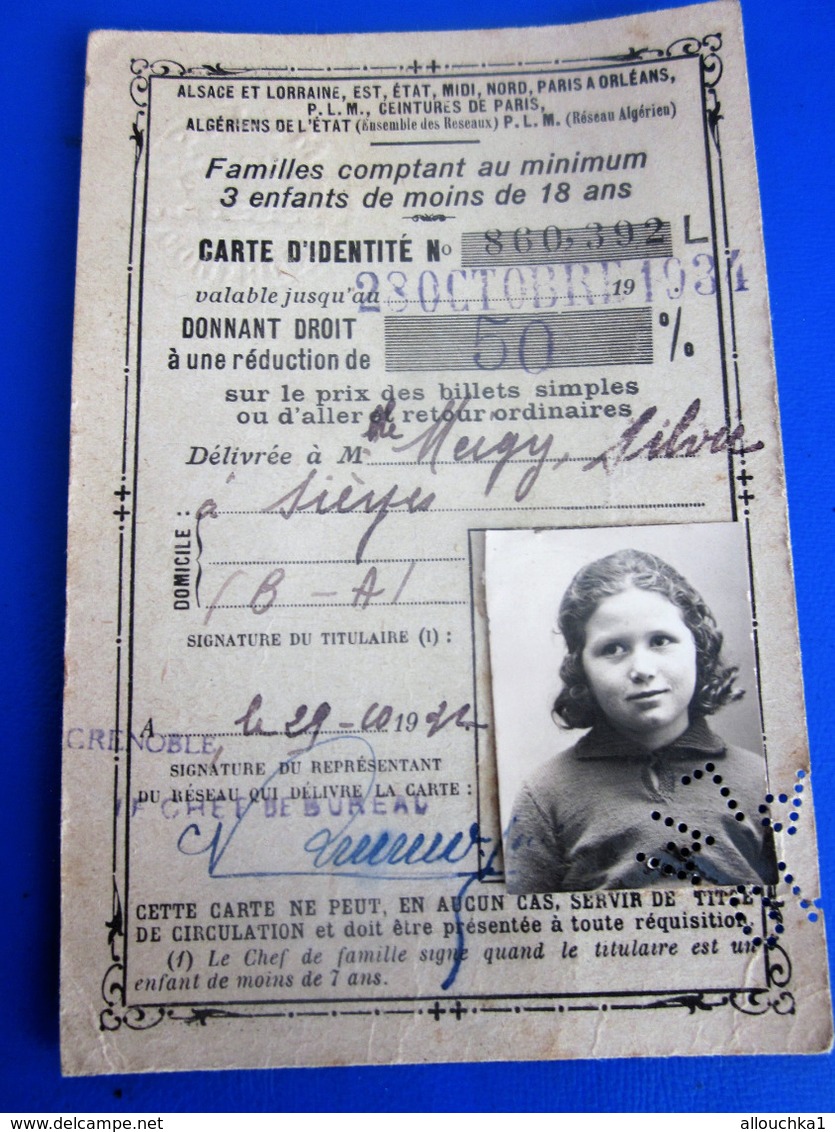 ALSACE ET LORRAINE, EST, ÉTAT, MIDI, NORD, PARIS A ORLÉANS,
P.L.M., CEINTURES DE PARIS,
ALGÉRIENS DE L'ÉTAT (Ensemble des Reseaux) P.L.M. (Réseau Algérien)
Familles comptant au minimum
3 enfants de moins de 18 ans
CARTE D'IDENTITÉ No 860,392 L
valable jusqu'au 28 OCTOBRE 19 1934
DONNANT DROIT
à une réduction de 50 %
sur le prix des billets simples
ou d'aller et retour ordinaires
Délivrée à M lle Meugy, Silvie
DOMICILE : à Sièyes
(B-A)
SIGNATURE DU TITULAIRE (1) :
A le 29-10 19
GRENOBLE,
SIGNATURE DU REPRÉSENTANT
DU RÉSEAU QUI DÉLIVRE LA CARTE :
LE CHEF DE BUREAU
CETTE CARTE NE PEUT, EN AUCUN CAS, SERVIR DE TITRE
DE CIRCULATION et doit être présentée à toute réquisition.
(1) Le Chef de famille signe quand le titulaire est un
enfant de moins de 7 ans.
allouchka1